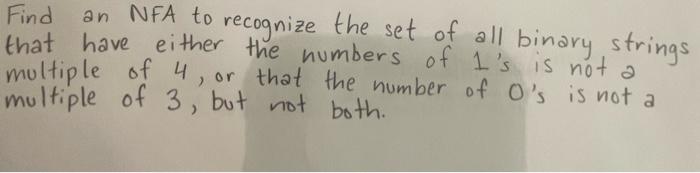 Find an NFA to recognize the set of all binary strings
that have either the numbers of 1's is not a
multiple of 4, or that the number of 0's is not a
multiple of 3, but not both.